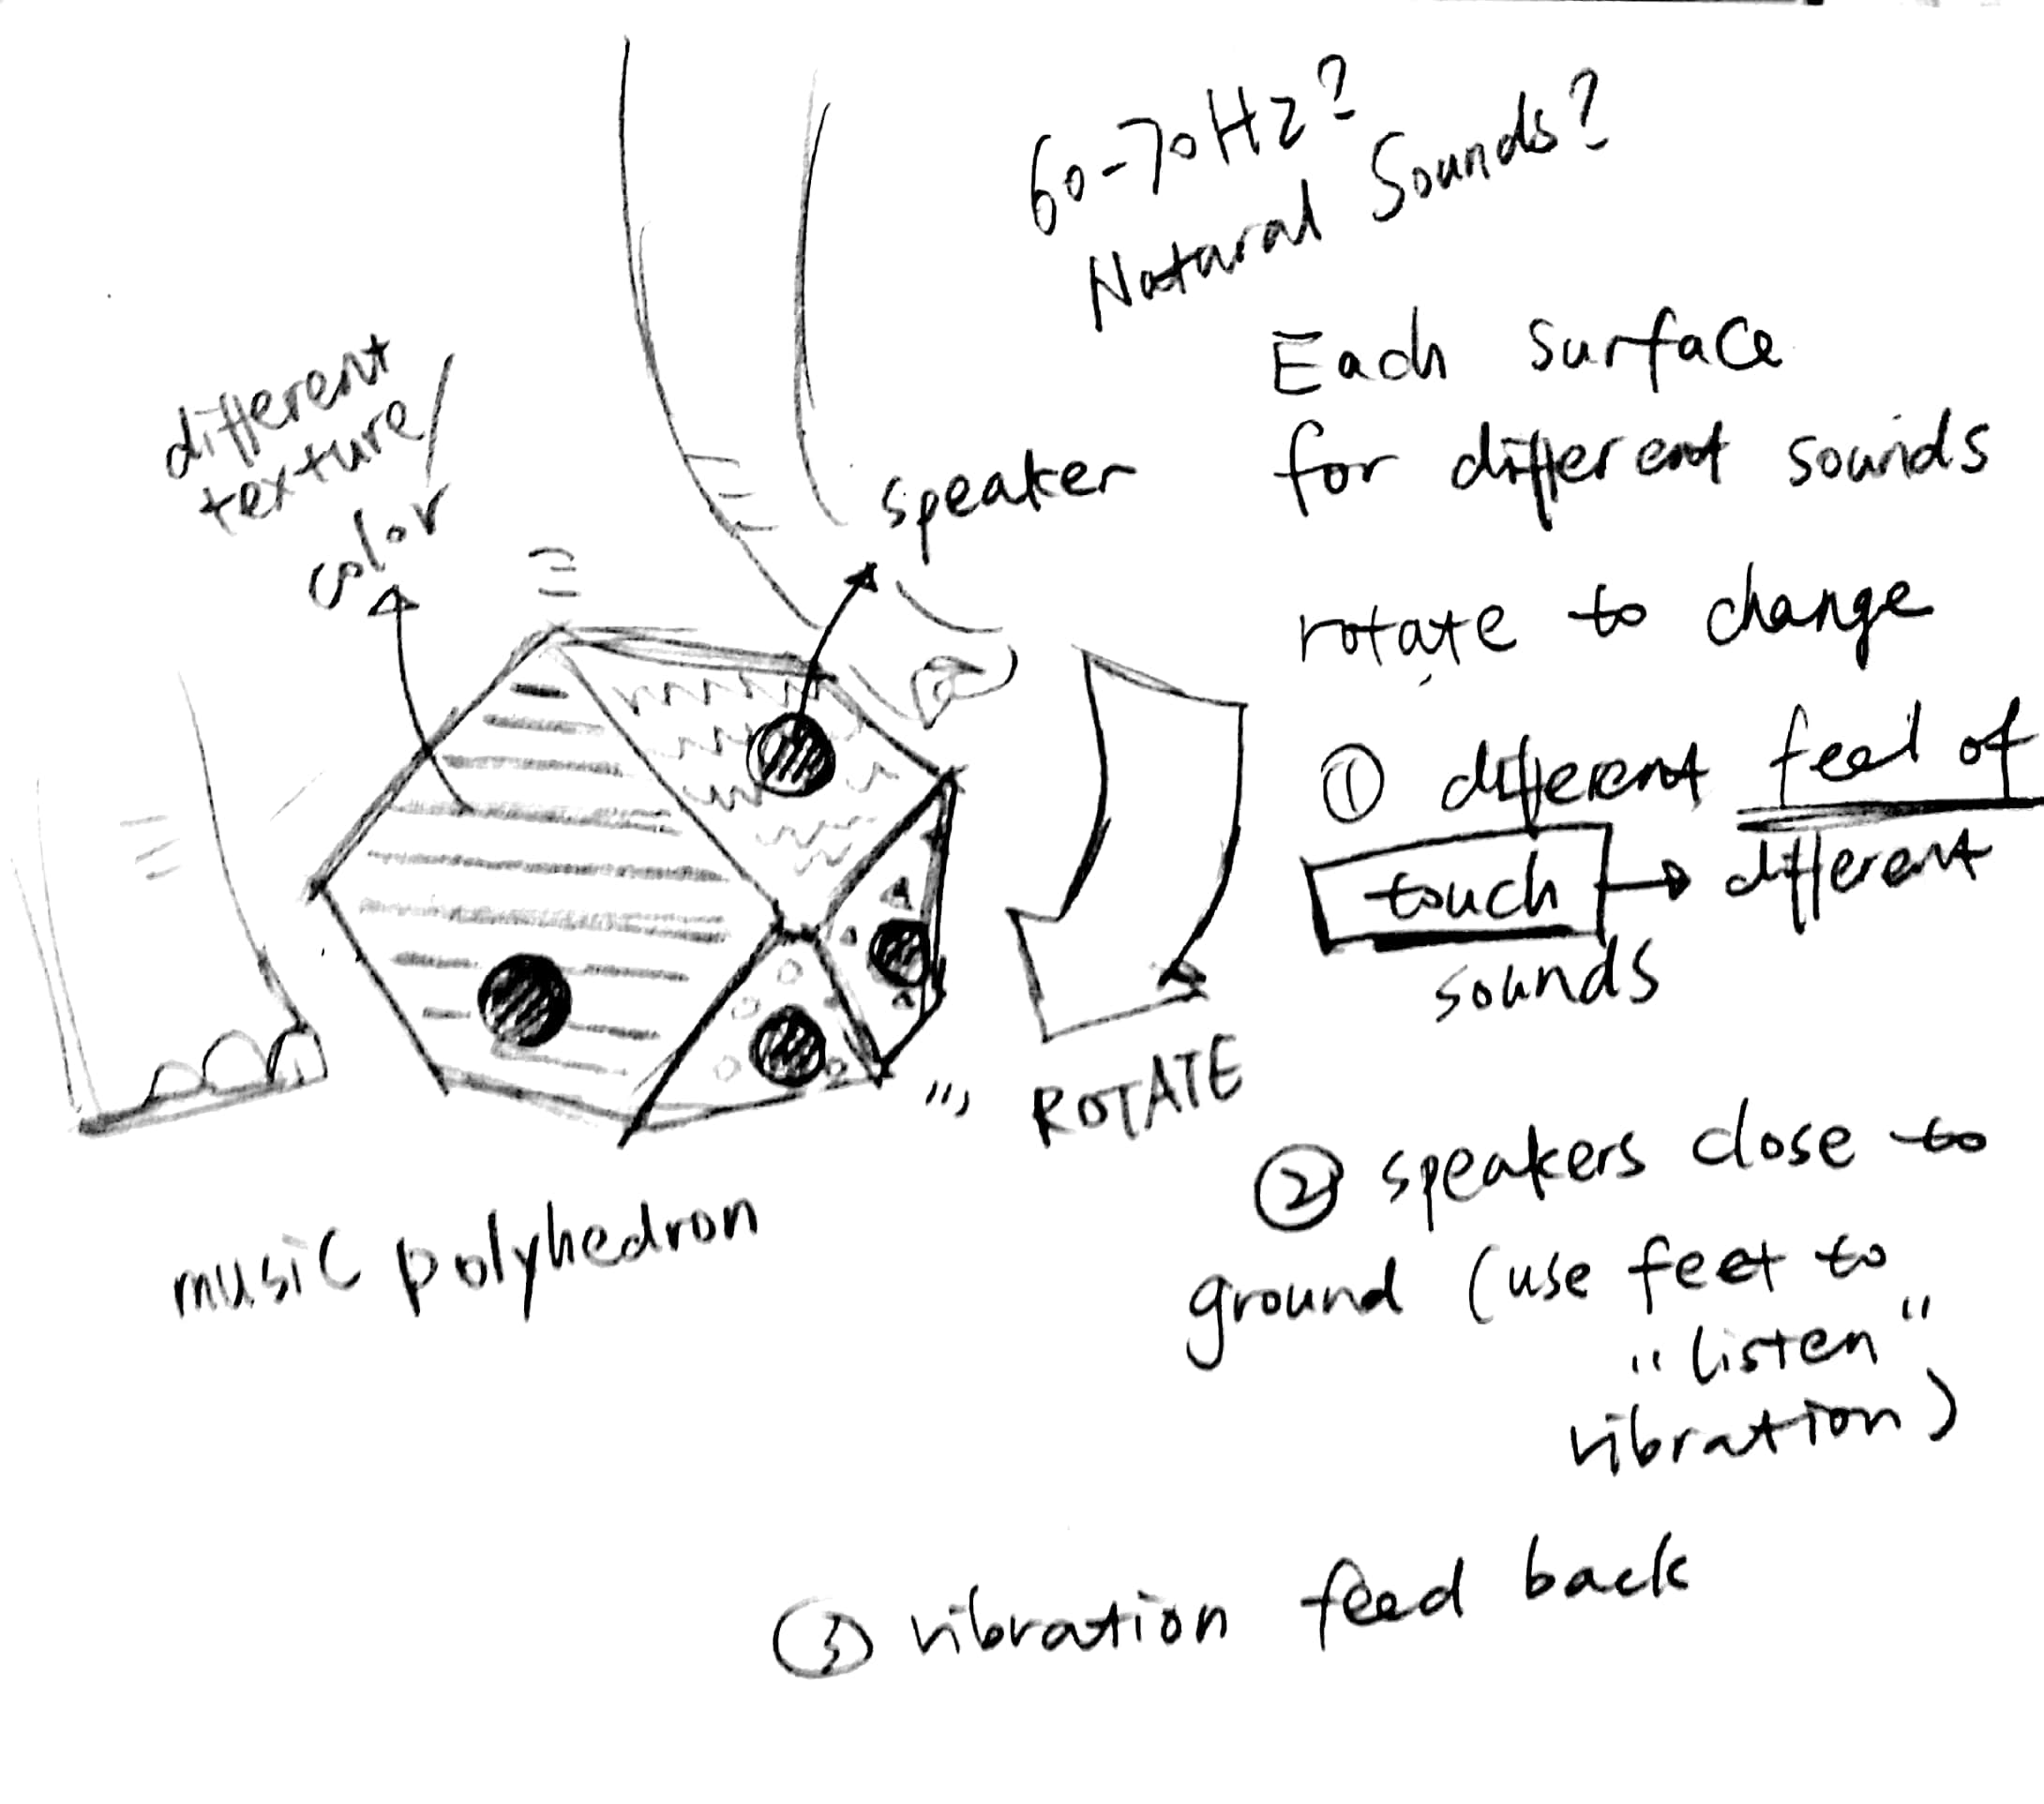 60-70Hz?
Natural Sounds?
different
texture/
color
speaker
Each surface
for different sounds
rotate to change
① different feel of
touch → different
sounds
ROTATE
music polyhedron
② speakers close to
ground (use feet to
"listen"
vibration)
③ vibration feed back